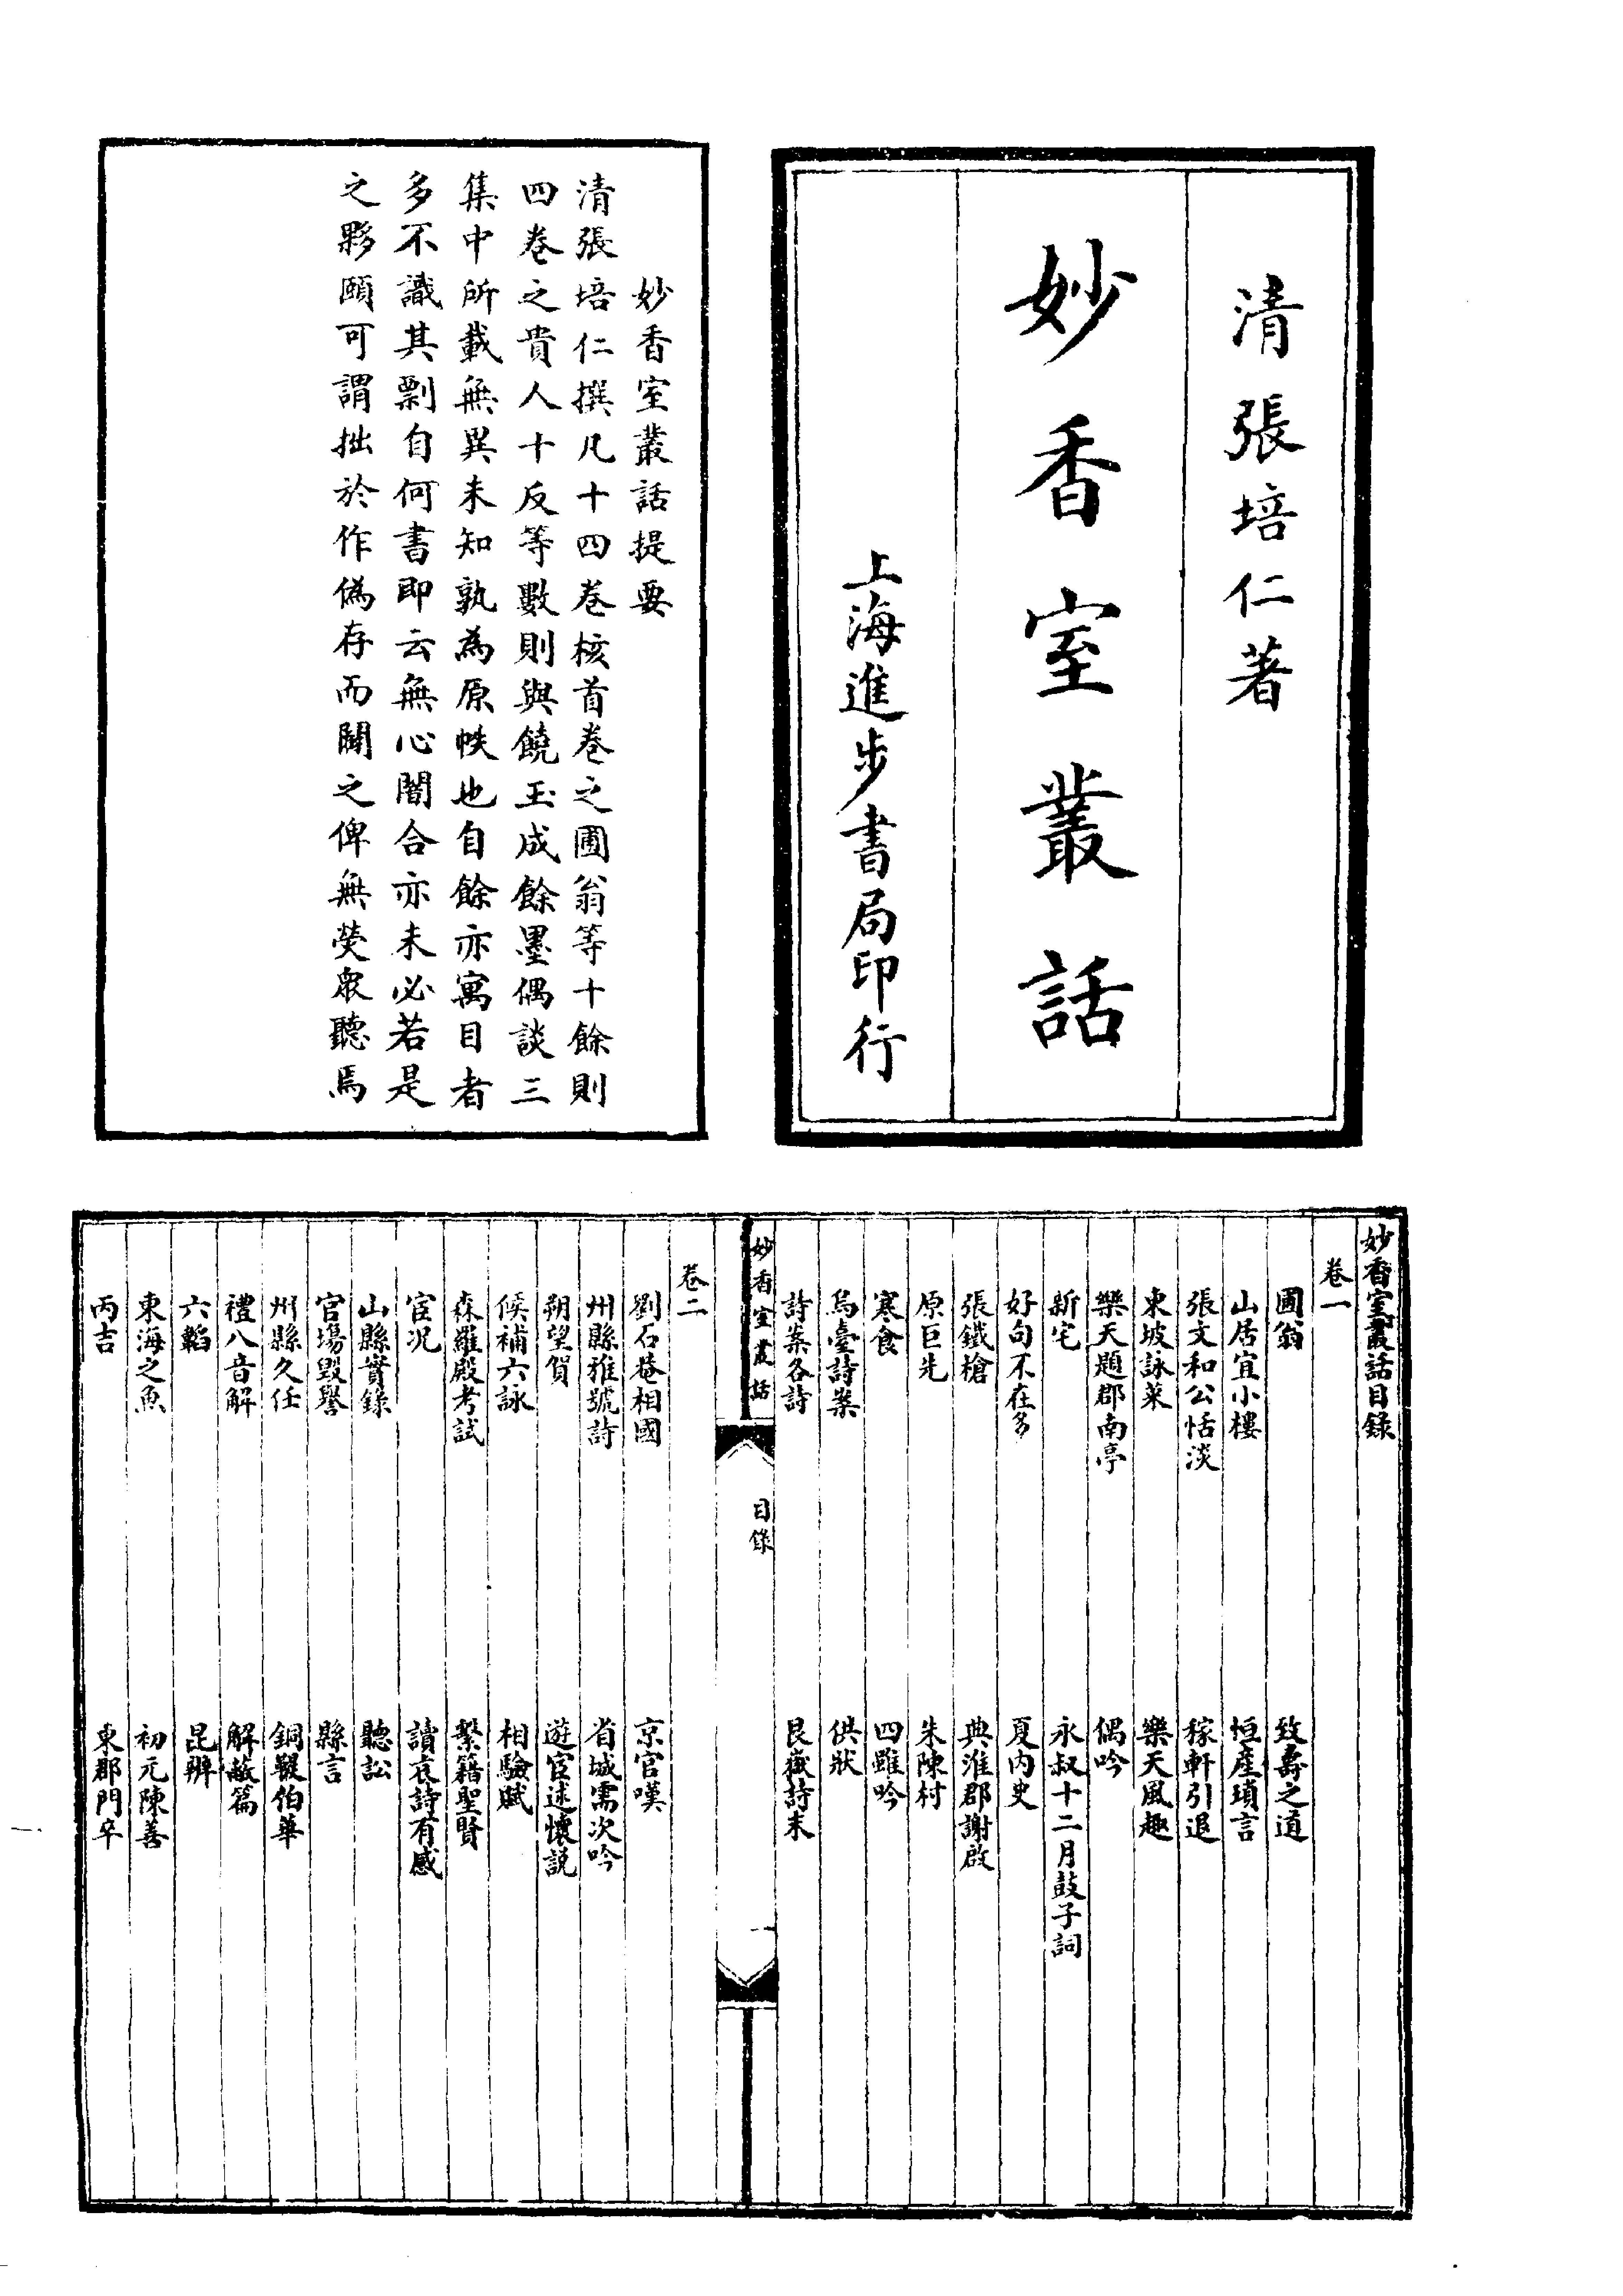 清張培仁著
妙香室叢話
上海進步書局印行
妙香室叢話提要
清張培仁撰凡十四卷核首卷之圃翁等十餘則
四卷之貴人十反等數則與饒玉成餘墨偶談三
集中所載無異未知孰為原帙也自餘亦寓目者
多不識其剽自何書即云無心闇合亦未必若是
之夥頤可謂拙於作偽存而闢之俾無熒眾聽焉
妙香室叢話目錄
卷一
圃翁
致壽之道
山居宜小樓
恒產瑣言
張文和公恬淡
稼軒引退
東坡詠菜
樂天風趣
樂天題郡南亭
偶吟
新宅
永叔十二月鼓子詞
好句不在多
夏內史
張鐵槍
典淮郡謝啟
原巨先
朱陳村
寒食
四雖吟
烏臺詩案
供狀
詩案各詩
艮嶽詩末
妙香室叢話
目錄
一
卷二
劉石菴相國
京官嘆
州縣雅號詩
省城需次吟
朔望賀
遊宦述懷說
候補六詠
相驗賦
森羅殿考試
繫籍聖賢
宦况
讀哀詩有感
山縣實錄
聽訟
官場毀譽
縣言
州縣久任
銅鞮伯華
禮八音解
解蔽篇
六韜
昆辨
東海之魚
初元陳善
丙吉
東郡門卒